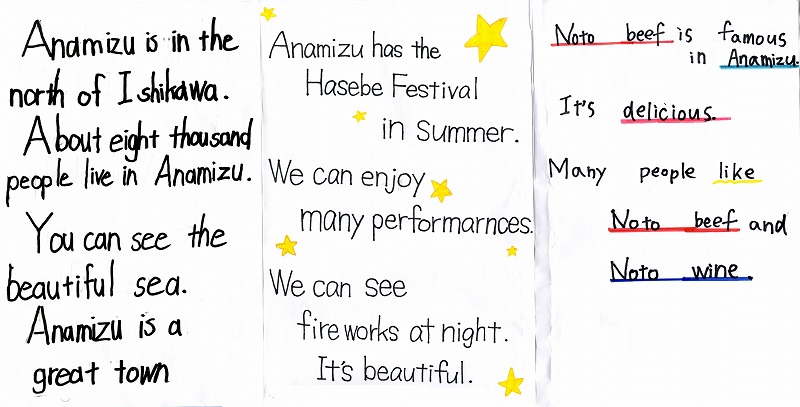 Anamizu is in the
north of Ishikawa.
About eight thousand
people live in Anamizu.
You can see the
beautiful sea.
Anamizu is a
great town
Anamizu has the
Hasebe Festival
in Summer.
We can enjoy
many performarnces.
We can see
fireworks at night.
It's beautiful.
Noto beef is famous
in Anamizu.
It's delicious.
Many people like
Noto beef and
Noto wine.